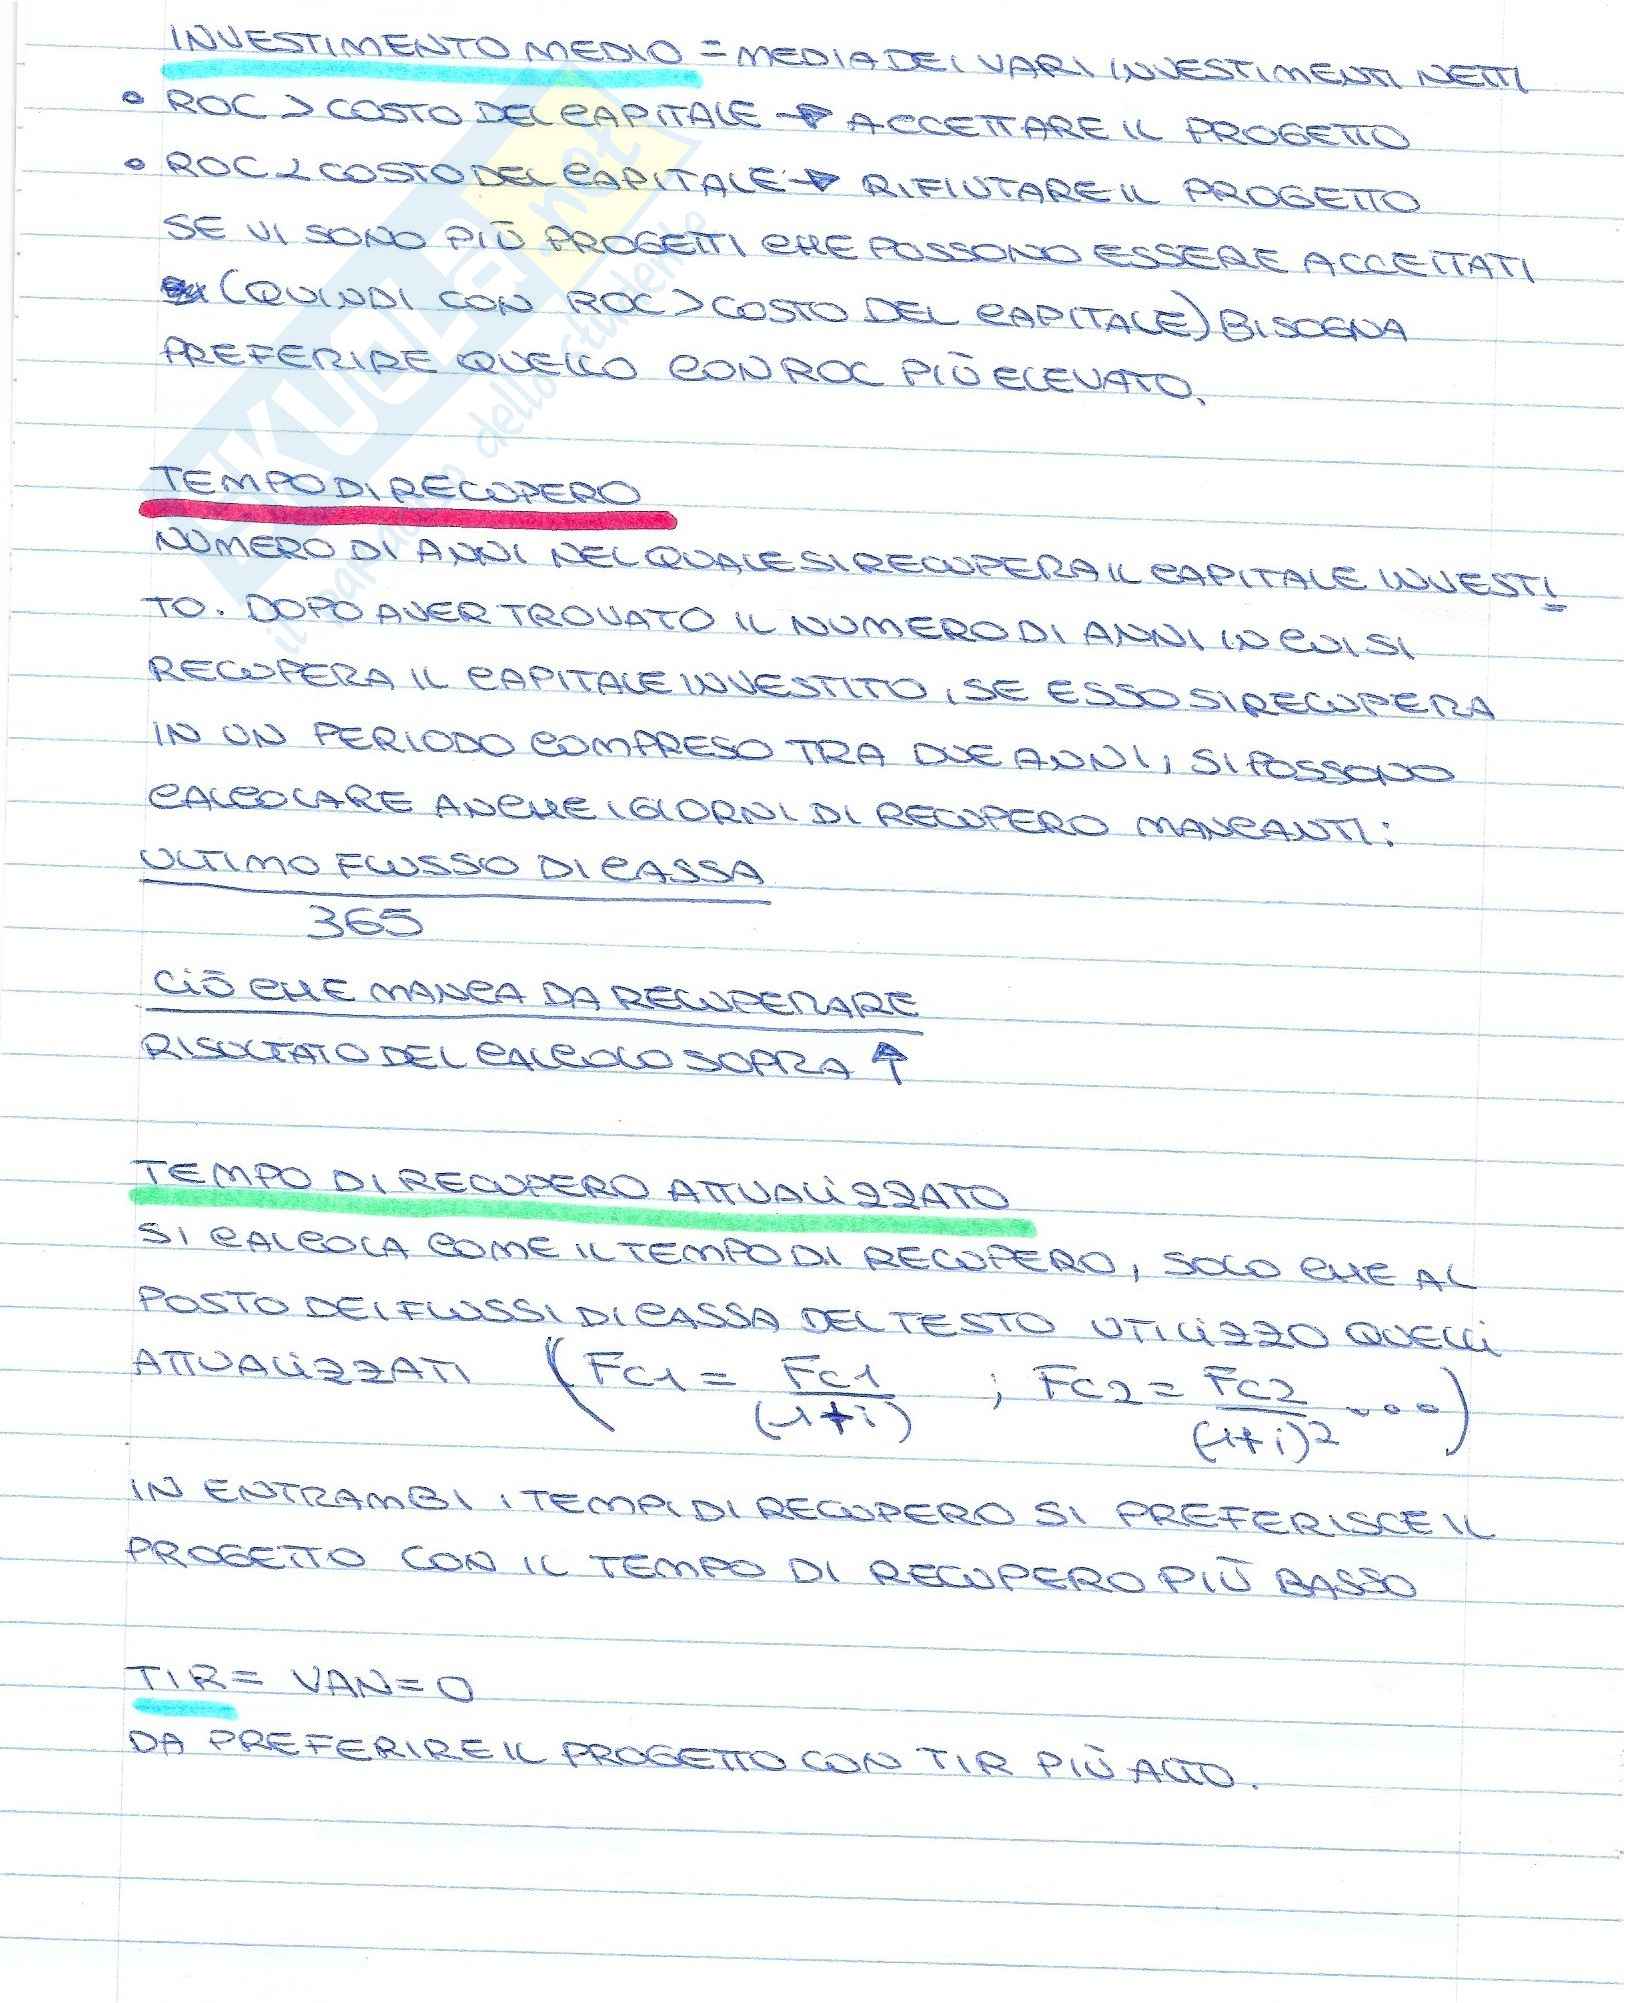 INVESTIMENTO MEDIO = MEDIA DEI VARI INVESTIMENTI NETTI
• ROC > COSTO DEL CAPITALE → ACCETTARE IL PROGETTO
• ROC < COSTO DEL CAPITALE → RIFIUTARE IL PROGETTO
SE VI SONO PIÙ PROGETTI CHE POSSONO ESSERE ACCETTATI
(QUINDI CON ROC > COSTO DEL CAPITALE) BISOGNA
PREFERIRE QUELLO CON ROC PIÙ ELEVATO.
TEMPO DI RECUPERO
NUMERO DI ANNI NEL QUALE SI RECUPERA IL CAPITALE INVESTI
TO. DOPO AVER TROVATO IL NUMERO DI ANNI IN CUI SI
RECUPERA IL CAPITALE INVESTITO, SE ESSO SI RECUPERA
IN UN PERIODO COMPRESO TRA DUE ANNI, SI POSSONO
CALCOLARE ANCHE I GIORNI DI RECUPERO MANCANTI:
ULTIMO FLUSSO DI CASSA
365
CIÒ CHE MANCA DA RECUPERARE
RISULTATO DEL CALCOLO SOPRA ↑
TEMPO DI RECUPERO ATTUALIZZATO
SI CALCOLA COME IL TEMPO DI RECUPERO, SOLO CHE AL
POSTO DEI FLUSSI DI CASSA DEL TESTO UTILIZZO QUELLI
ATTUALIZZATI (FC1 = FC1/(1+i) ; FC2 = FC2/(1+i)² ...)
IN ENTRAMBI I TEMPI DI RECUPERO SI PREFERISCE IL
PROGETTO CON IL TEMPO DI RECUPERO PIÙ BASSO
TIR = VAN = 0
DA PREFERIRE IL PROGETTO CON TIR PIÙ ALTO.
SKUOLA.net